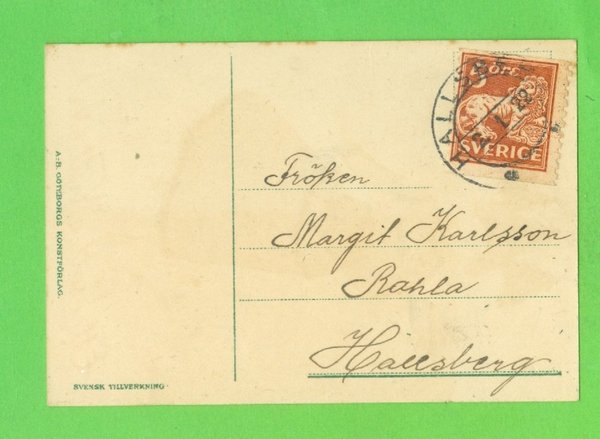 A.-B. GÖTEBORGS KONSTFÖRLAG.
5 ÖRE
SVERIGE
HALLSBERG
Fröken
Margit Karlsson
Rahla
Hallsberg
SVENSK TILLVERKNING